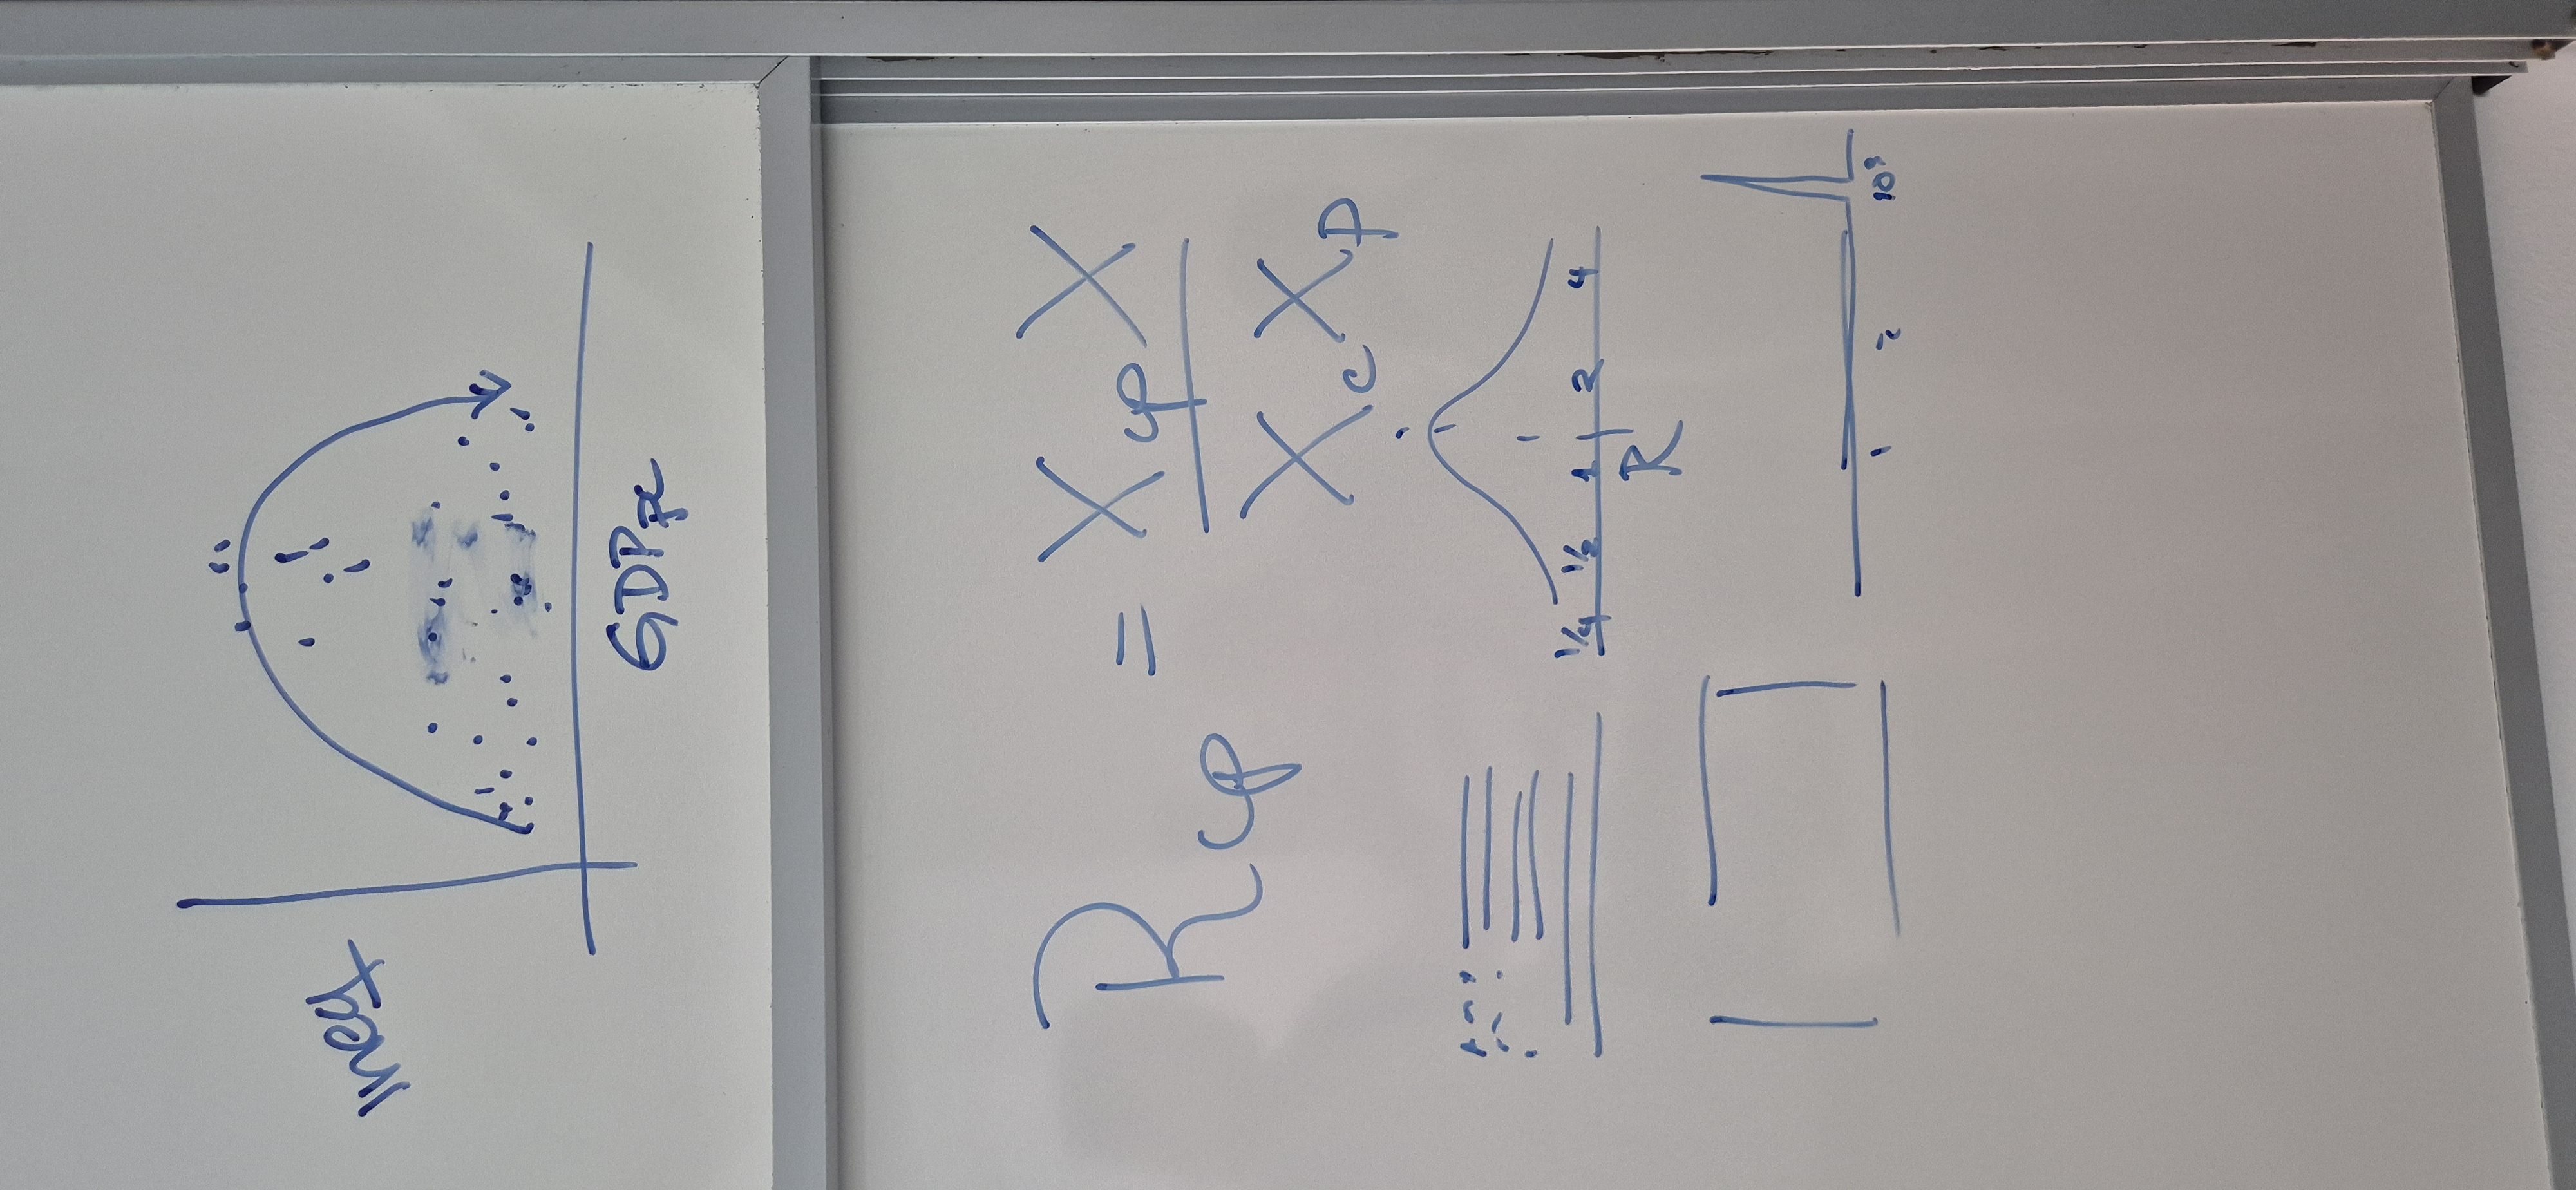 Ineq
GDPpc
Rcp = XcpX
XcXp
1/4 1/2 1 2 4
R
1 2 10³